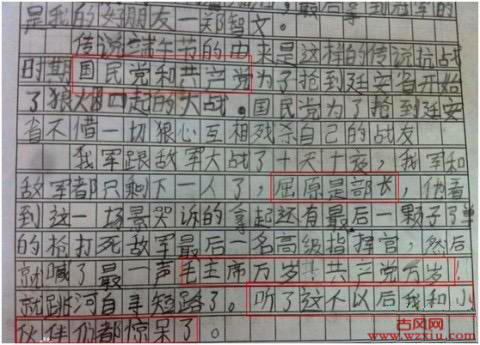 是我的好朋友一郑智文。
传说端午节的由来是这样的传说抗战
时期国民党和共产党为了抢到延安省开始
了狼烟四起的大战。国民党为了抢到延安
省不惜一切狠心互相残杀自己的战友
我军跟敌军大战了十天十夜，我军和
敌军都只剩下一人了，屈原是部长，他看
到这一场景哭诉的拿起还有最后一颗子弹
的枪打死敌军最后一名高级指挥官，然后
就喊了最一声毛主席万岁！共产党万岁！
就跳河自寻短路了。听了这个以后我和小
伙伴们都惊呆了。
古风网
www.wzxiu.com